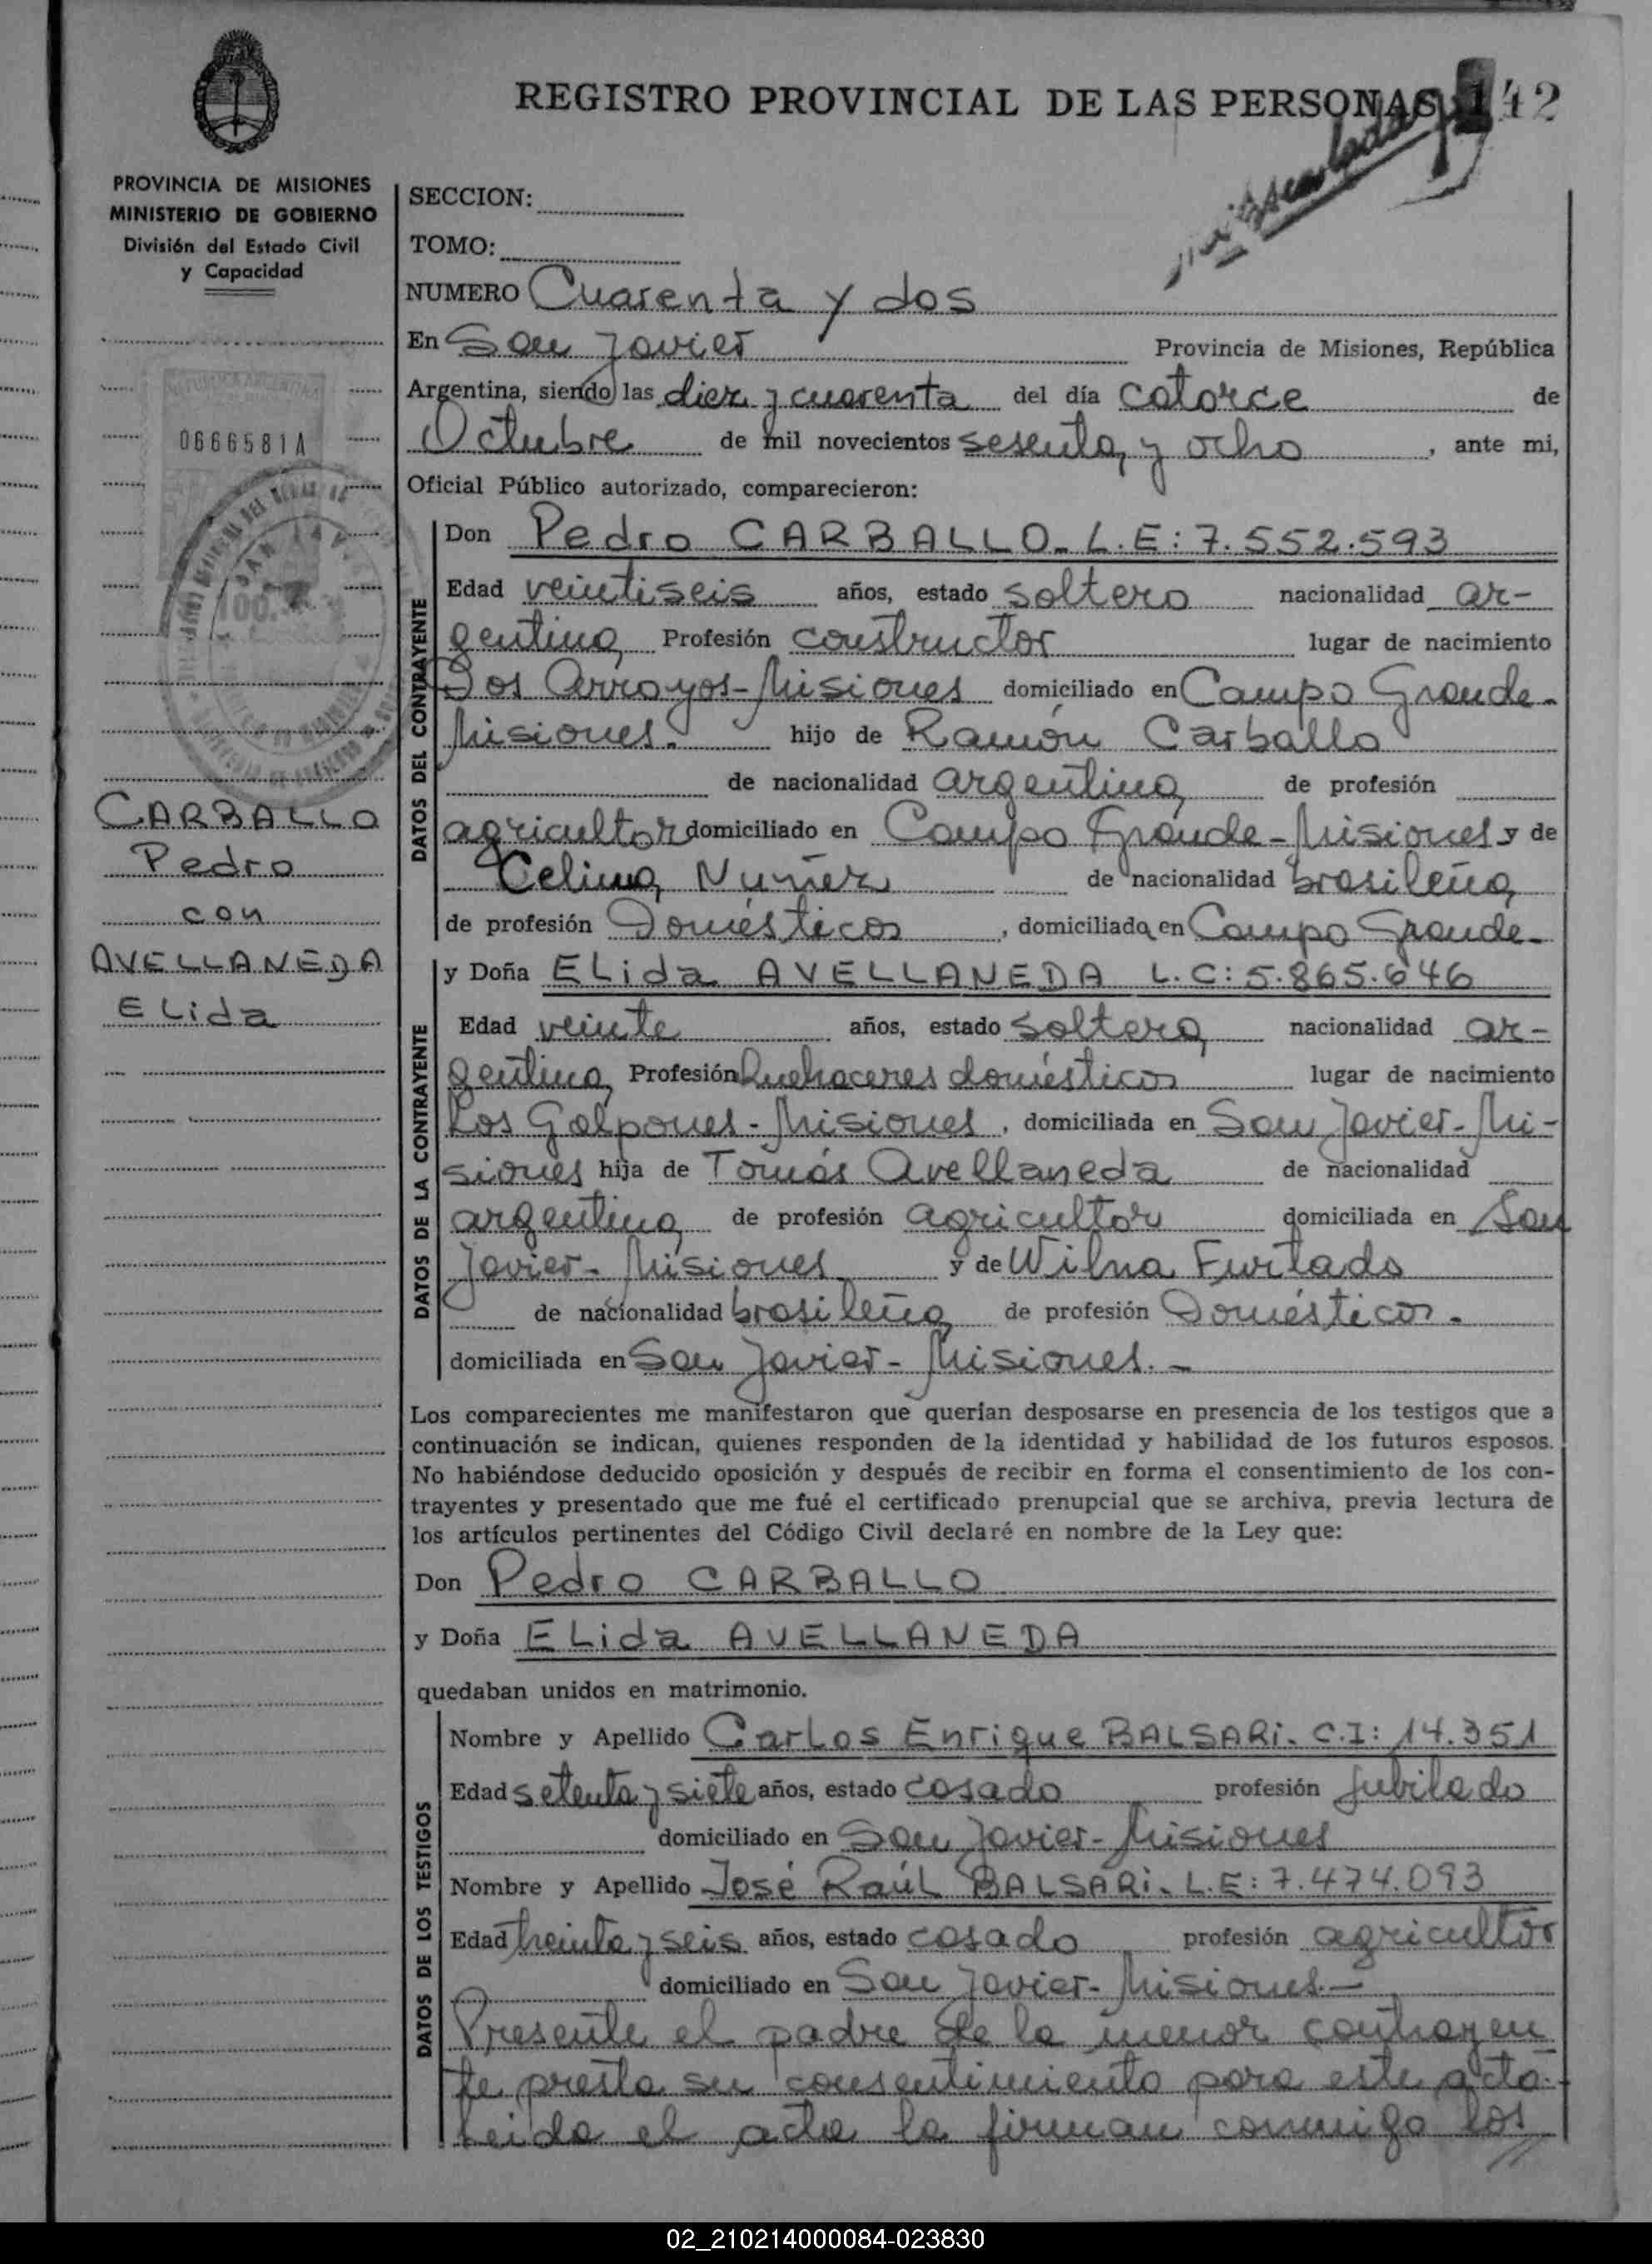 REGISTRO PROVINCIAL DE LAS PERSONAS
142
PROVINCIA DE MISIONES
MINISTERIO DE GOBIERNO
División del Estado Civil
y Capacidad
0666581A
100.
CARBALLO
Pedro
con
AVELLANEDA
Elida
SECCION:
TOMO:
NUMERO Cuarenta y dos
En San Javier Provincia de Misiones, República
Argentina, siendo las diez y cuarenta del día catorce de
Octubre de mil novecientos sesenta y ocho, ante mi,
Oficial Público autorizado, comparecieron:
DATOS DEL CONTRAYENTE
Don Pedro CARBALLO. L.E: 7.552.593
Edad veintiseis años, estado soltero nacionalidad ar-
gentina Profesión constructor lugar de nacimiento
Dos Arroyos-Misiones domiciliado en Campo Grande-
Misiones. hijo de Ramón Carballo
de nacionalidad argentina de profesión
agricultor domiciliado en Campo Grande-Misiones y de
Celina Nuñez de nacionalidad brasileña
de profesión Domésticos, domiciliada en Campo Grande-
DATOS DE LA CONTRAYENTE
y Doña Elida AVELLANEDA L.C: 5.865.646
Edad veinte años, estado soltera nacionalidad ar-
gentina Profesión Quehaceres domésticos lugar de nacimiento
Los Galpones-Misiones, domiciliada en San Javier-Mi-
siones hija de Tomás Avellaneda de nacionalidad
argentina de profesión agricultor domiciliada en San
Javier-Misiones y de Wilna Furtado
de nacionalidad brasileña de profesión Domésticos.
domiciliada en San Javier-Misiones.-
Los comparecientes me manifestaron que querían desposarse en presencia de los testigos que a
continuación se indican, quienes responden de la identidad y habilidad de los futuros esposos.
No habiéndose deducido oposición y después de recibir en forma el consentimiento de los con-
trayentes y presentado que me fué el certificado prenupcial que se archiva, previa lectura de
los artículos pertinentes del Código Civil declaré en nombre de la Ley que:
Don Pedro CARBALLO
y Doña Elida AVELLANEDA
quedaban unidos en matrimonio.
DATOS DE LOS TESTIGOS
Nombre y Apellido Carlos Enrique BALSARi. C.I: 14.351
Edad setenta y siete años, estado casado profesión Jubilado
domiciliado en San Javier-Misiones
Nombre y Apellido José Raúl BALSARi. L.E: 7.474.093
Edad treinta y seis años, estado casado profesión agricultor
domiciliado en San Javier-Misiones.-
Presente el padre de la menor contrayen
te presta su consentimiento para este acto.
Leida el acta la firman conmigo los
02_210214000084-023830